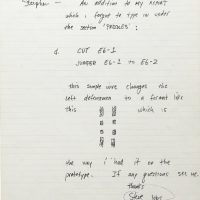 Stephen — An addition to my REPORT
which i forgot to type in under
the section "PADDLES":
d. CUT E6-1
JUMPER E6-1 TO E6-2
this simple wire changes the
left deflection to a format like
this which is
the way i had it on the
prototype. If any questions see me.
thanks
Steve Jobs